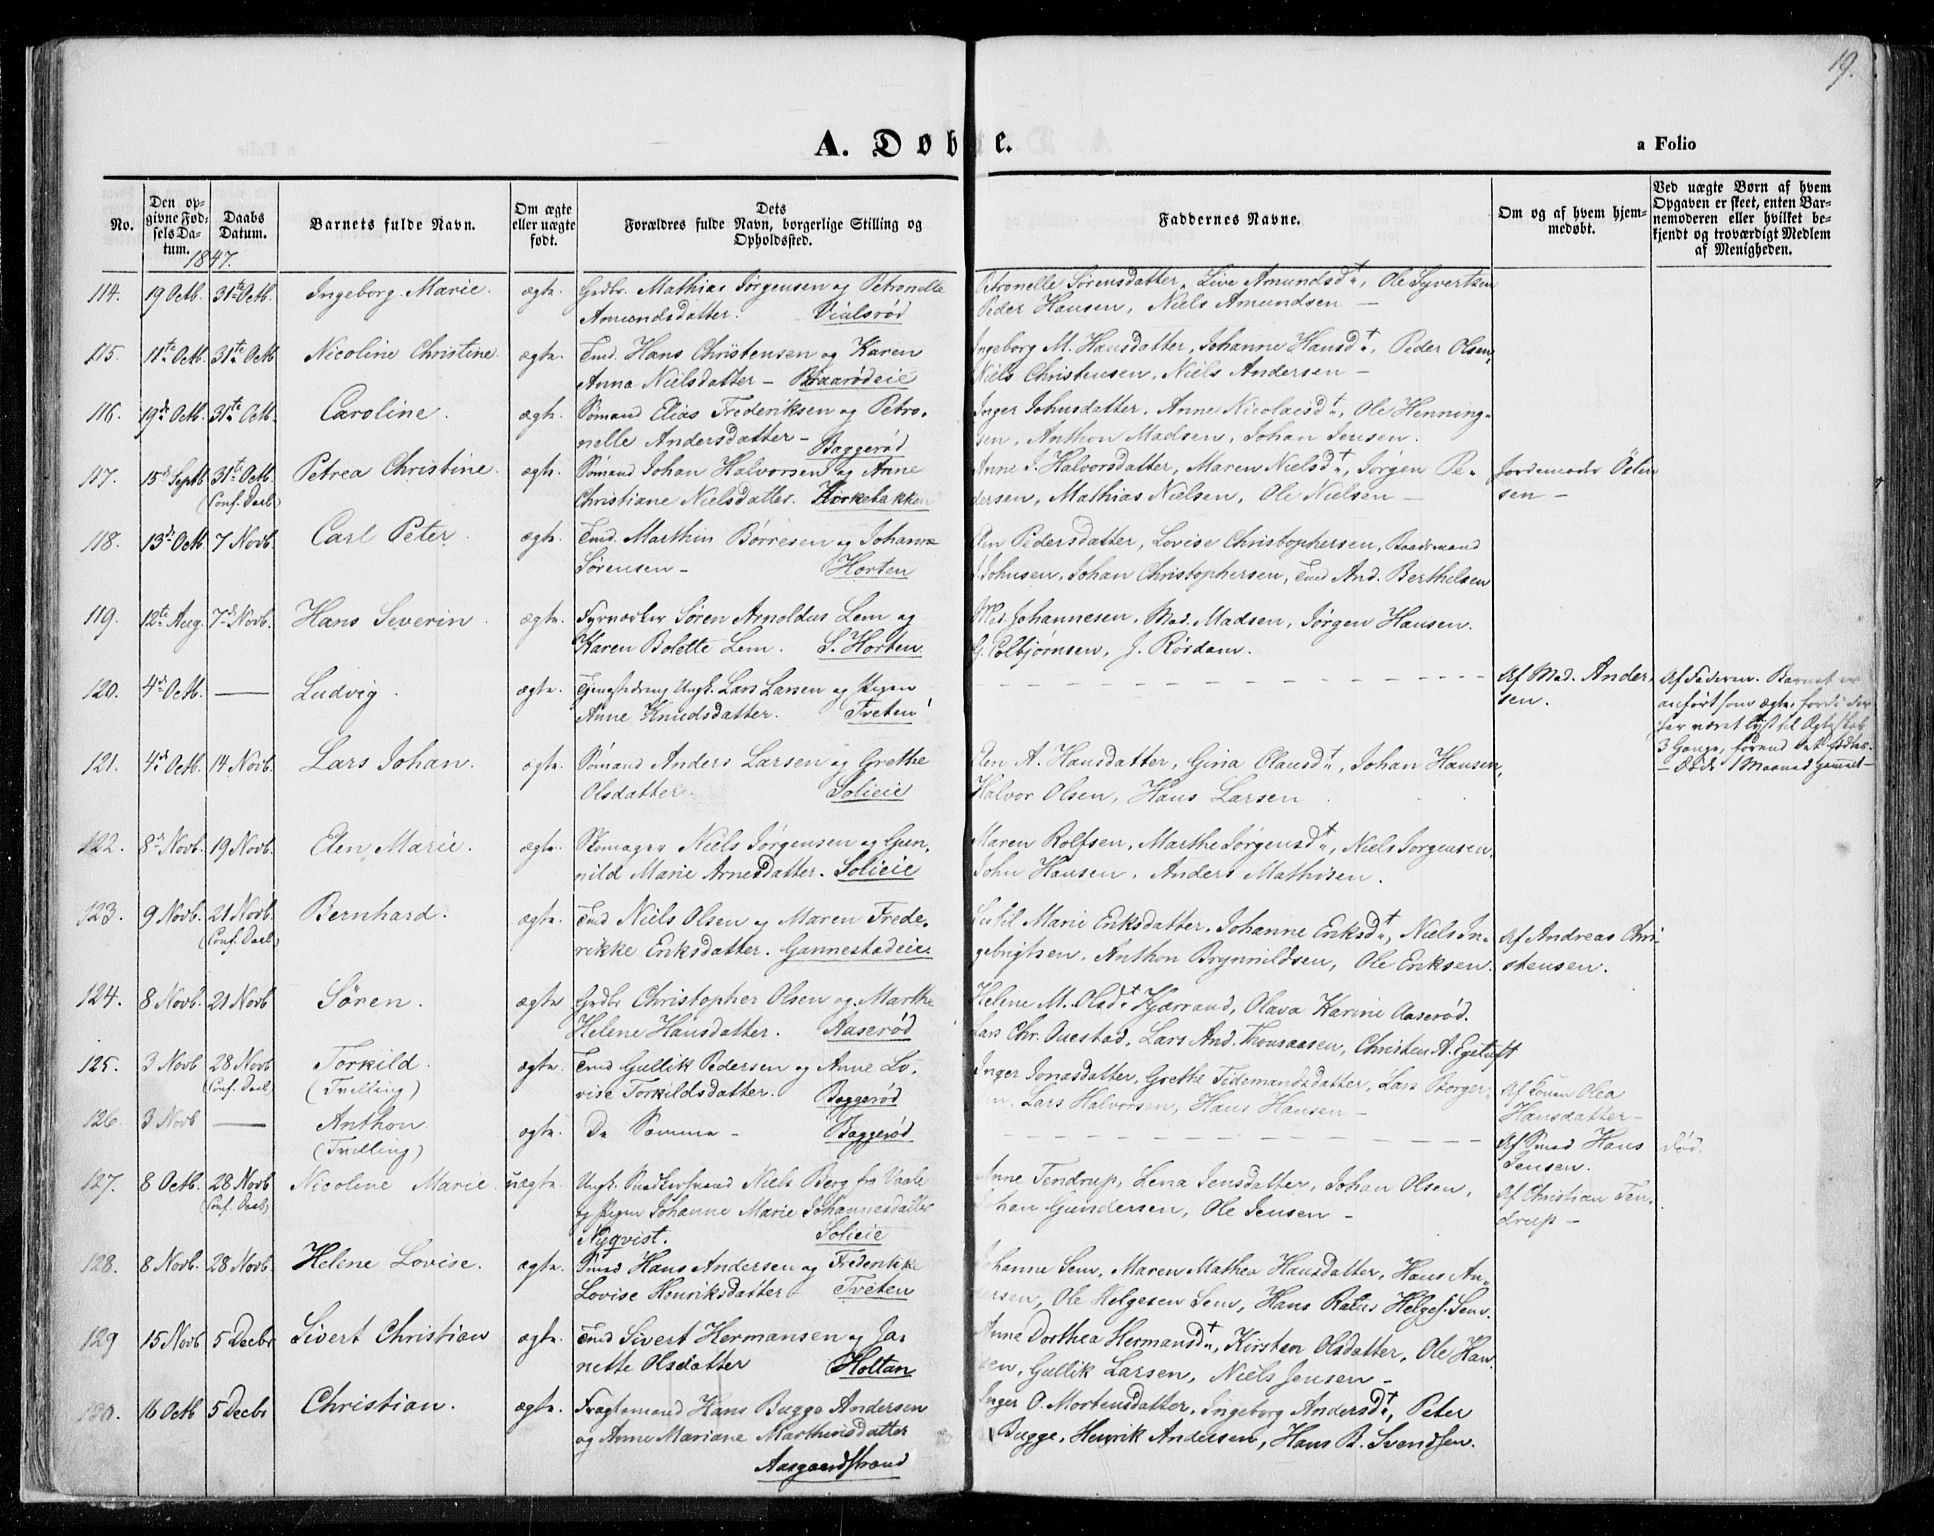 19.
A. Døbte.
a Folio
No.
Den opgivne Fødselsdatum.
1847.
Daabs Datum.
Barnets fulde Navn.
Om ægte eller uægte født.
Dets
Forældres fulde Navn, borgerlige Stilling og Opholdssted.
Faddernes Navne.
Om og af hvem hjemmedøbt.
Ved uægte Børn af hvem Opgaven er skeet, enten Barnemoderen eller hvilket bekjendt og troværdigt Medlem af Menigheden.
114. 19 Octb. 31te Octb. Ingeborg Marie. ægte. Grdbr. Mathias Jørgensen og Petronelle
Amundsdatter. Vialsrød
Petronelle Sørensdatter, Live Amundsdtr, Ole Syvertsen
Peder Hansen, Niels Amundsen —
115. 11te Octb. 31te Octb Nicoline Christine. ægte. Tmd. Hans Christensen og Karen
Anna Nielsdatter — Braarødeie
Ingeborg M. Hansdatter, Johanne Hansdtr, Peder Olsen,
Niels Christensen, Niels Andersen —
116. 19de Octb. 31te Octb. Caroline. ægte. Sømand Elias Frederiksen og Petro-
nelle Andersdatter — Baggerød
Inger Johnsdatter, Anne Nicolaisdtr, Ole Henning-
sen, Anthon Madsen, Johan Jensen.
117. 15de Septb 31te Octb (Conf. Daab) Petrea Christine. ægte. Sømand Johan Halvorsen og Anne
Christiane Nielsdatter. Korkebakken
Anne J. Halvorsdatter, Maren Nielsdtr, Jørgen Pe-
dersen, Mathias Nielsen, Ole Nielsen —
Jordemoder Osten
sen —
118. 13de Octb 7 Novb. Carl Peter. ægte. Tmd. Marthin Børresen og Johanne
Sørensen — Horten
Elen Pedersdatter, Lovise Christophersen, Baadsmand
J. Johnsen, Johan Christophersen, Tmd And. Berthelsen
119. 12te Aug. 7de Novb. Hans Severin. ægte. Fyrverker Søren Arnoldus Lem og
Karen Bolette Lem. S. Horten.
Md. Johannesen, Mad. Madsen, Jørgen Hansen.
G. Polbjørnsen, J. Rørdam.
120. 4de Octb. — Ludvig. ægte. Tjenestedreng Ungk. Lars Larsen og Pigen
Anne Knudsdatter. Tveten
Af Mad. Ander-
sen.
Af Faderen. Barnet er
anført som ægte, fordi der
har været lyst til Ægteskab
3 Gange, førend det fødtes.
— Døde 1 Maaned gammelt —
121. 4de Octb. 14 Novb. Lars Johan. ægte. Sømand Anders Larsen og Grethe
Olsdatter. Solieie
Elen A. Hansdatter, Gina Olausdtr, Johan Hansen,
Halvor Olsen, Hans Larsen.
122. 8de Novb. 19 Novb. Elen Marie. ægte. Skomager Niels Jørgensen og Gun-
nild Marie Arnesdatter. Solieie
Maren Rolfsen, Marthe Jørgensdtr, Niels Jørgensen,
John Hansen, Anders Mathisen.
123. 9 Novb. 21 Novb. (Conf. Daab) Bernhard. ægte. Tmd Niels Olsen og Maren Frede-
rikke Eriksdatter. Gannestadeie.
Marie Eriksdatter, Johanne Eriksdtr, Niels In-
gebrigtsen, Anthon Brynnildsen, Ole Eriksen.
Af Andreas Chri-
stensen.
124. 8 Novb. 21 Novb Søren. ægte Grdbr Christopher Olsen og Marthe
Helene Hansdatter. Aaserød
Helene M. Olsdtr Kjærrand, Olava Karine Aaserød.
Lars Chr. Questad, Lars And. Thorsaasen, Christen A. Egetuft
125. 3 Novb 28 Novb (Conf. Daab) Torkild. (Tvilling) ægte. Tmd Gullik Pedersen og Anne Lo-
vise Torkildsdatter. Baggerød
Inger Jonasdatter, Grethe Tidemandsdatter, Lars Borger-
sen, Lars Halvorsen, Hans Hansen —
Af Olea
Hansdatter —
126. 3 Novb — Anthon. (Tvilling) ægte. De Samme — Baggerød
Af Smed Hans
Jensen.
død.
127. 8 Octb. 28 Novb (Conf. Daab) Nicoline Marie. uægte. Ungk. Niels Berg fra Vaale
og Pigen Johanne Marie Johannesdatter
Nyqvist. Solieie
Anne Tendrup, Lena Jensdatter, Johan Olsen,
Johan Gundersen, Ole Jensen —
Af Christian Ten-
drup —
128. 8 Novb. 28 Novb. Helene Lovise. ægte. Smed Hans Andersen og Frederikke
Lovise Henriksdatter Tveten
Johanne Sem, Maren Mathea Hansdatter, Hans An-
dersen, Ole Helgesen Sem, Hans Ratus Helges. Sem.
129 15 Novb 5 Decbr Sivert Christian ægte. Tmd Sivert Hermansen og Ja-
nette Olsdatter Holtan
Anne Dorthea Hermansdtr, Kirsten Olsdatter, Ole Han-
sen, Gullik Larsen, Niels Jensen —
130. 16 Octb 5 Decbr Christian. ægte. Fragtemand Hans Bugge Andersen
og Anne Mariane Marthinsdatter
Aasgaardstrand
Inger O. Mortensdatter, Ingeborg Andersdtr, Peter
Bugge, Henrik Andersen, Hans B. Svendsen.